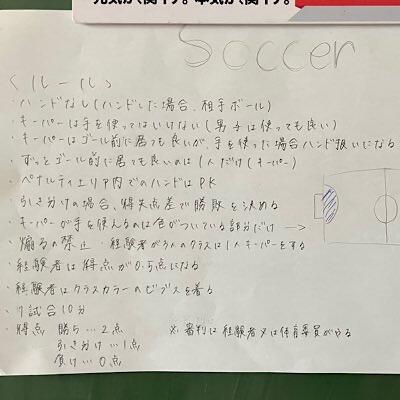 元気が関キノ。本気が関キノ。
Soccer
〈ルール〉
・ハンドなし(ハンドした場合、相手ボール)
・キーパーは手を使ってはいけない(男子は使っても良い)
・キーパーはゴール前に居ても良いが、手を使った場合ハンド扱いになる
・ずっとゴール前に居ても良いのは1人だけ(キーパー)
・ペナルティエリア内でのハンドはPK
・引き分けの場合、得失点差で勝敗を決める
・キーパーが手を使えるのは色がついている部分だけ →
・煽るの禁止 ・経験者が3人のクラスは1人キーパーをする
・経験者は得点が0.5点になる
・経験者はクラスカラーのビブスを着る
・1試合10分
・得点 勝ち…2点 ※審判は経験者又は体育委員がやる
引き分け…1点
負け…0点